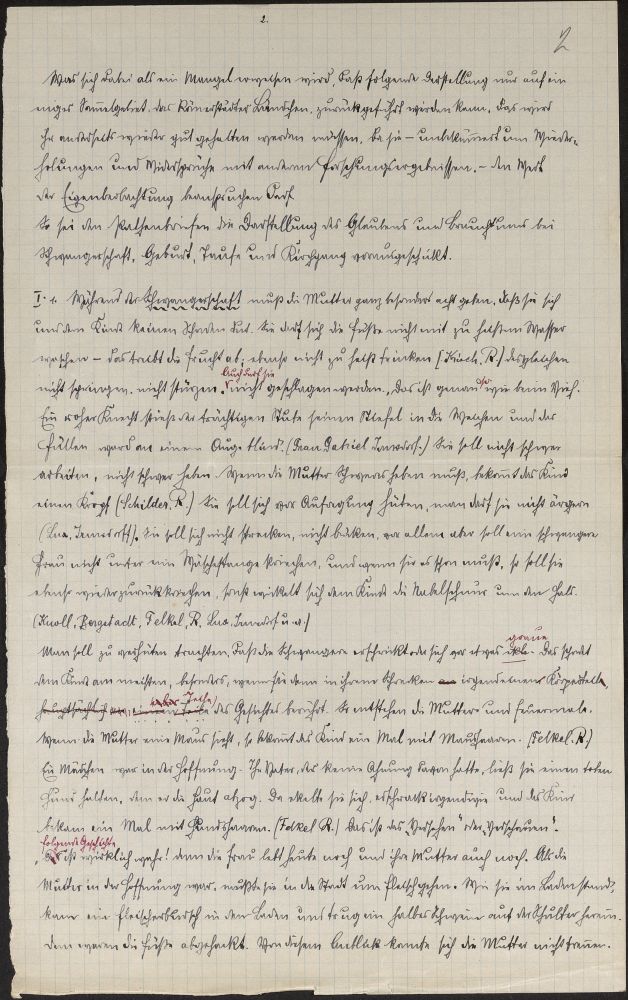 2.
2
Was sich dabei als ein Mangel erweisen wird, daß folgende Darstellung nur auf ein
niges Sammelgebiet des Römerstädter Ländchen, zurückgeführt werden kann, das wird
ihr anderseits wieder gut gehalten werden müssen, da sie – unbekümmert um Wieder-
holungen und Widersprüche mit anderen Forschungsergebnissen. – den Wert
der Eigenbeobachtung beanspruchen darf.
So sei den Patenbriefen die Darstellung des Glaubens und Brauchtums bei
Schwangerschaft, Geburt, Taufe und Kirchgang vorausgeschickt.
I. 1. Während der Schwangerschaft muß die Mutter ganz besonders acht geben, daß sie sich
und dem Kind keinen Schaden tut. Sie darf sich die Füße nicht mit zu heißem Wasser
waschen – das treibt die Frucht ab; ebenso nicht zu heiß trinken [ R.] desgleichen
nicht springen, nicht stürzen. Auch darf sie nicht geschlagen werden, "das ist genau so wie beim Vieh.
Ein roher Knecht stieß der trächtigen Stute seinen Stiefel in die Weichen und das
Füllen ward an einem Auge blind. ( Janndorf.) Sie soll nicht schwer
arbeiten, nicht schwer heben. Wenn die Mutter Schweres heben muß, bekommt das Kind
einen Kropf (Schilder, R.) Sie soll sich vor Aufregung hüten, man darf sie nicht ärgern
(Ina, Janndorf), Sie soll sich nicht strecken, nicht bücken, vor allem aber soll eine schwangere
Frau nicht unter eine Wäschestange kriechen, und wenn sie es schon muß, so soll sie
ebenso wieder zurückkriechen, sonst wickelt sich dem Kinde die Nabelschnur um den Hals.
(Knoll, Bergstadt, Felkel, R. Ina, Janndorf u. a.)
Man soll zu verhüten trachten, daß die Schwangere erschrickt oder sich vor etwas graue. Das schadet
dem Kind am meisten, besonders, wenn sie dann in ihrem Schrecken irgendeine Körperstelle,
des Gesichtes berührt. So entstehen die Muttern und Feuermale.
Wenn die Mutter eine Maus sieht, so bekommt das Kind ein Mal mit Maushaaren. (Felkel. R.)
Ein Mädchen war in der Hoffnung. Ihr Vater, der keine Ahnung davon hatte, ließ sie einen toten
Hund halten, dem er die Haut abzog. Da ekelte sie sich, erschrack irgendwie und das Kind
bekam ein Mal mit Hundshaaren. (Felkel R.) Das ist das "Versehen" oder "Verschauen".
"folgende Geschichte ist wirklich wahr! denn die Frau lebt heute noch und ihre Mutter auch noch. Als die
Mutter in der Hoffnung war, mußte sie in die Stadt um Fleisch gehen. Wie sie im Laden stand,
kam ein Fleischerbursch in den Laden und trug ein halbes Schwein auf der Schulter herein.
Dem waren die Füße abgehackt. Von diesem Anblick konnte sich die Mutter nicht trennen.